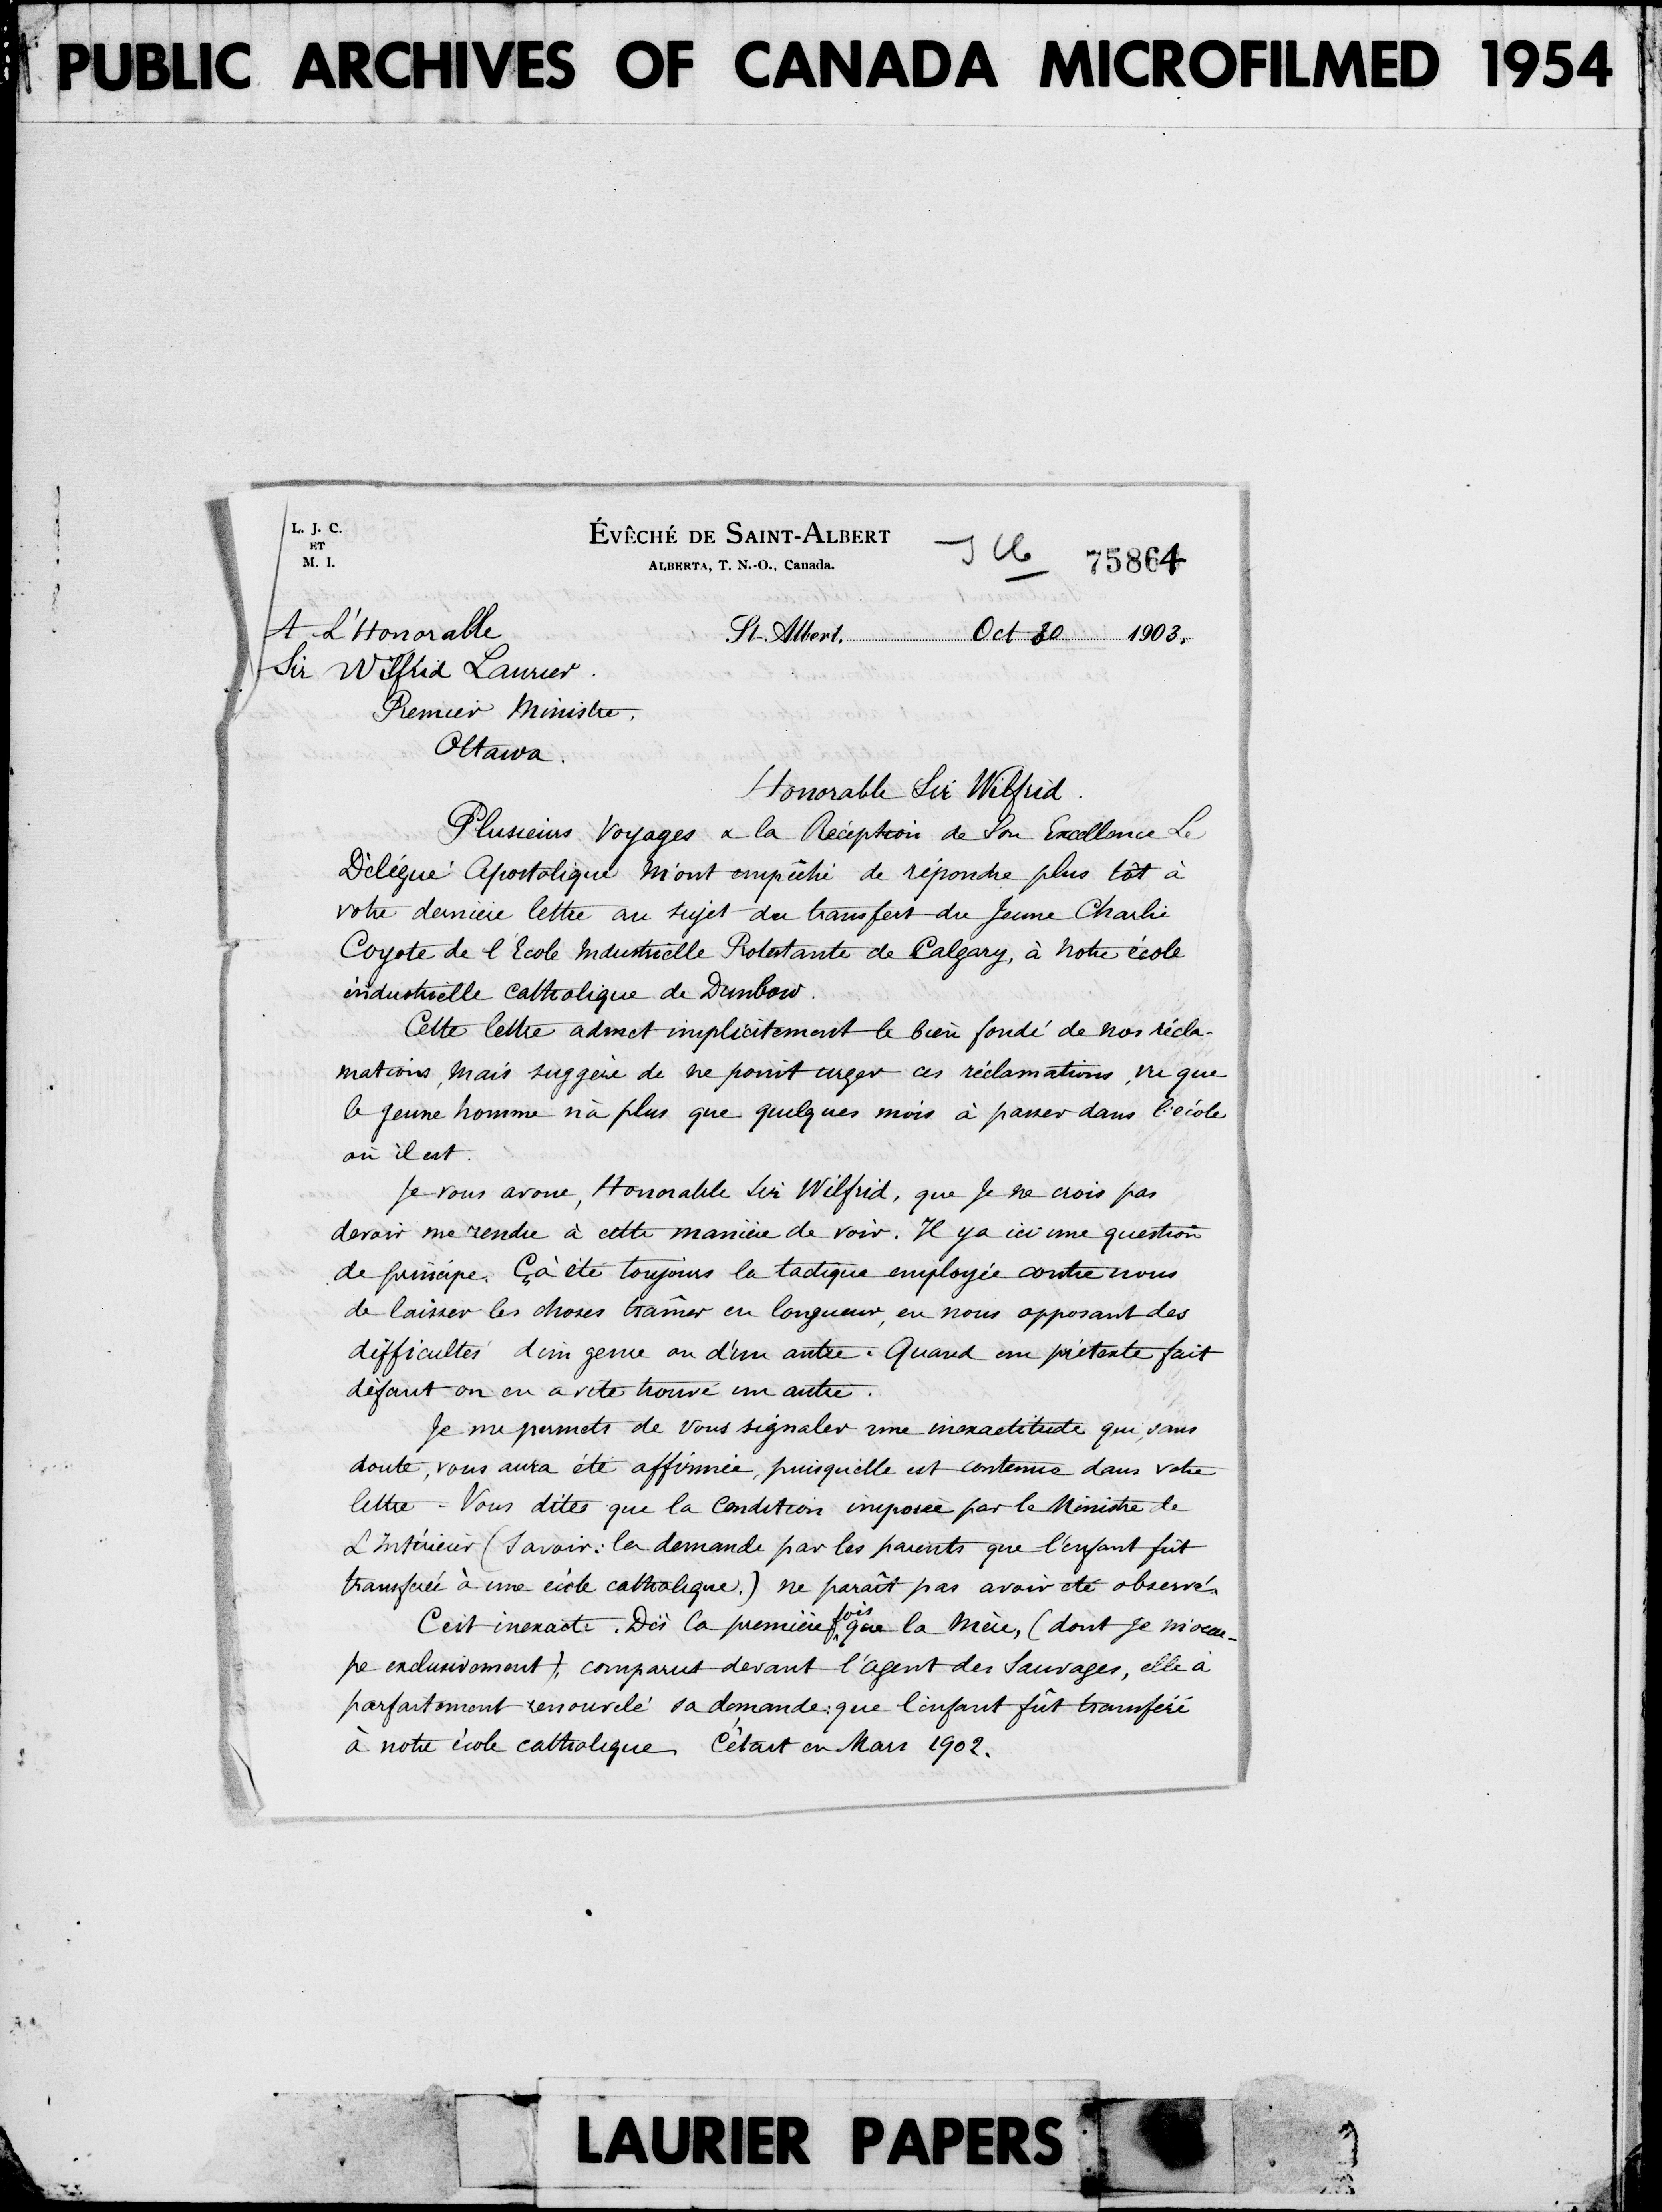 PUBLIC ARCHIVES OF CANADA MICROFILMED 1954
L. J. C.
ET
M. I.
ÉVÊCHÉ DE SAINT-ALBERT
ALBERTA, T. N.-O., Canada.
75864
A L'Honorable
St. Albert. Oct 30 1903.
Sir Wilfrid Laurier.
Premier Ministre.
Ottawa.
Honorable Sir Wilfrid.
Plusieurs Voyages & la Réception de Son Excellence Le
Délégué Apostolique m'ont empêché de répondre plus tôt à
votre dernière lettre au sujet du transfert du Jeune Charlie
Coyote de l'Ecole Industrielle Protestante de Calgary, à Notre école
industrielle catholique de Dunbow.
Cette lettre admet implicitement le bien fondé de nos récla-
mations, mais suggère de ne point urger ces réclamations, vu que
le jeune homme n'a plus que quelques mois à passer dans l'école
où il est.
Je vous avoue, Honorable Sir Wilfrid, que Je ne crois pas
devoir me rendre à cette manière de voir. Il y a ici une question
de principe. Ç'à été toujours la tactique employée contre nous
de laisser les choses traîner en longueur, en nous opposant des
difficultés d'un genre ou d'un autre. Quand un prétexte fait
défaut on en a vite trouvé un autre.
Je me permets de vous signaler une inexactitude qui, sans
doute, vous aura été affirmée, puisqu'elle est contenue dans votre
lettre - Vous dites que la Condition imposée par le Ministre de
L'Intérieur (Savoir: la demande par les parents que l'enfant fût
transféré à une école catholique.) ne paraît pas avoir été observé.
C'est inexacte. Dès la première fois que la Mère, (dont Je m'occu-
pe exclusivement), comparut devant l'agent des Sauvages, elle a
parfaitement renouvelé sa demande: que l'enfant fût transféré
à notre école catholique. C'était en Mars 1902.
LAURIER PAPERS